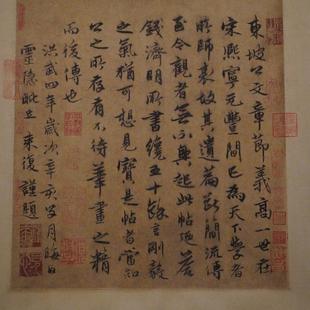 東坡公文章節義高一世在
宋熙寧元豐間已為天下學者
所師表故其遺篇斷簡流傳
至今觀者無不興起此帖廼答
錢濟明所書纔五十餘言剛毅
之氣猶可想見寶是帖者當知
公之所存有不待筆畫之精
而後傳也
洪武四年歲次辛亥月晦日
靈隱住山來復謹題